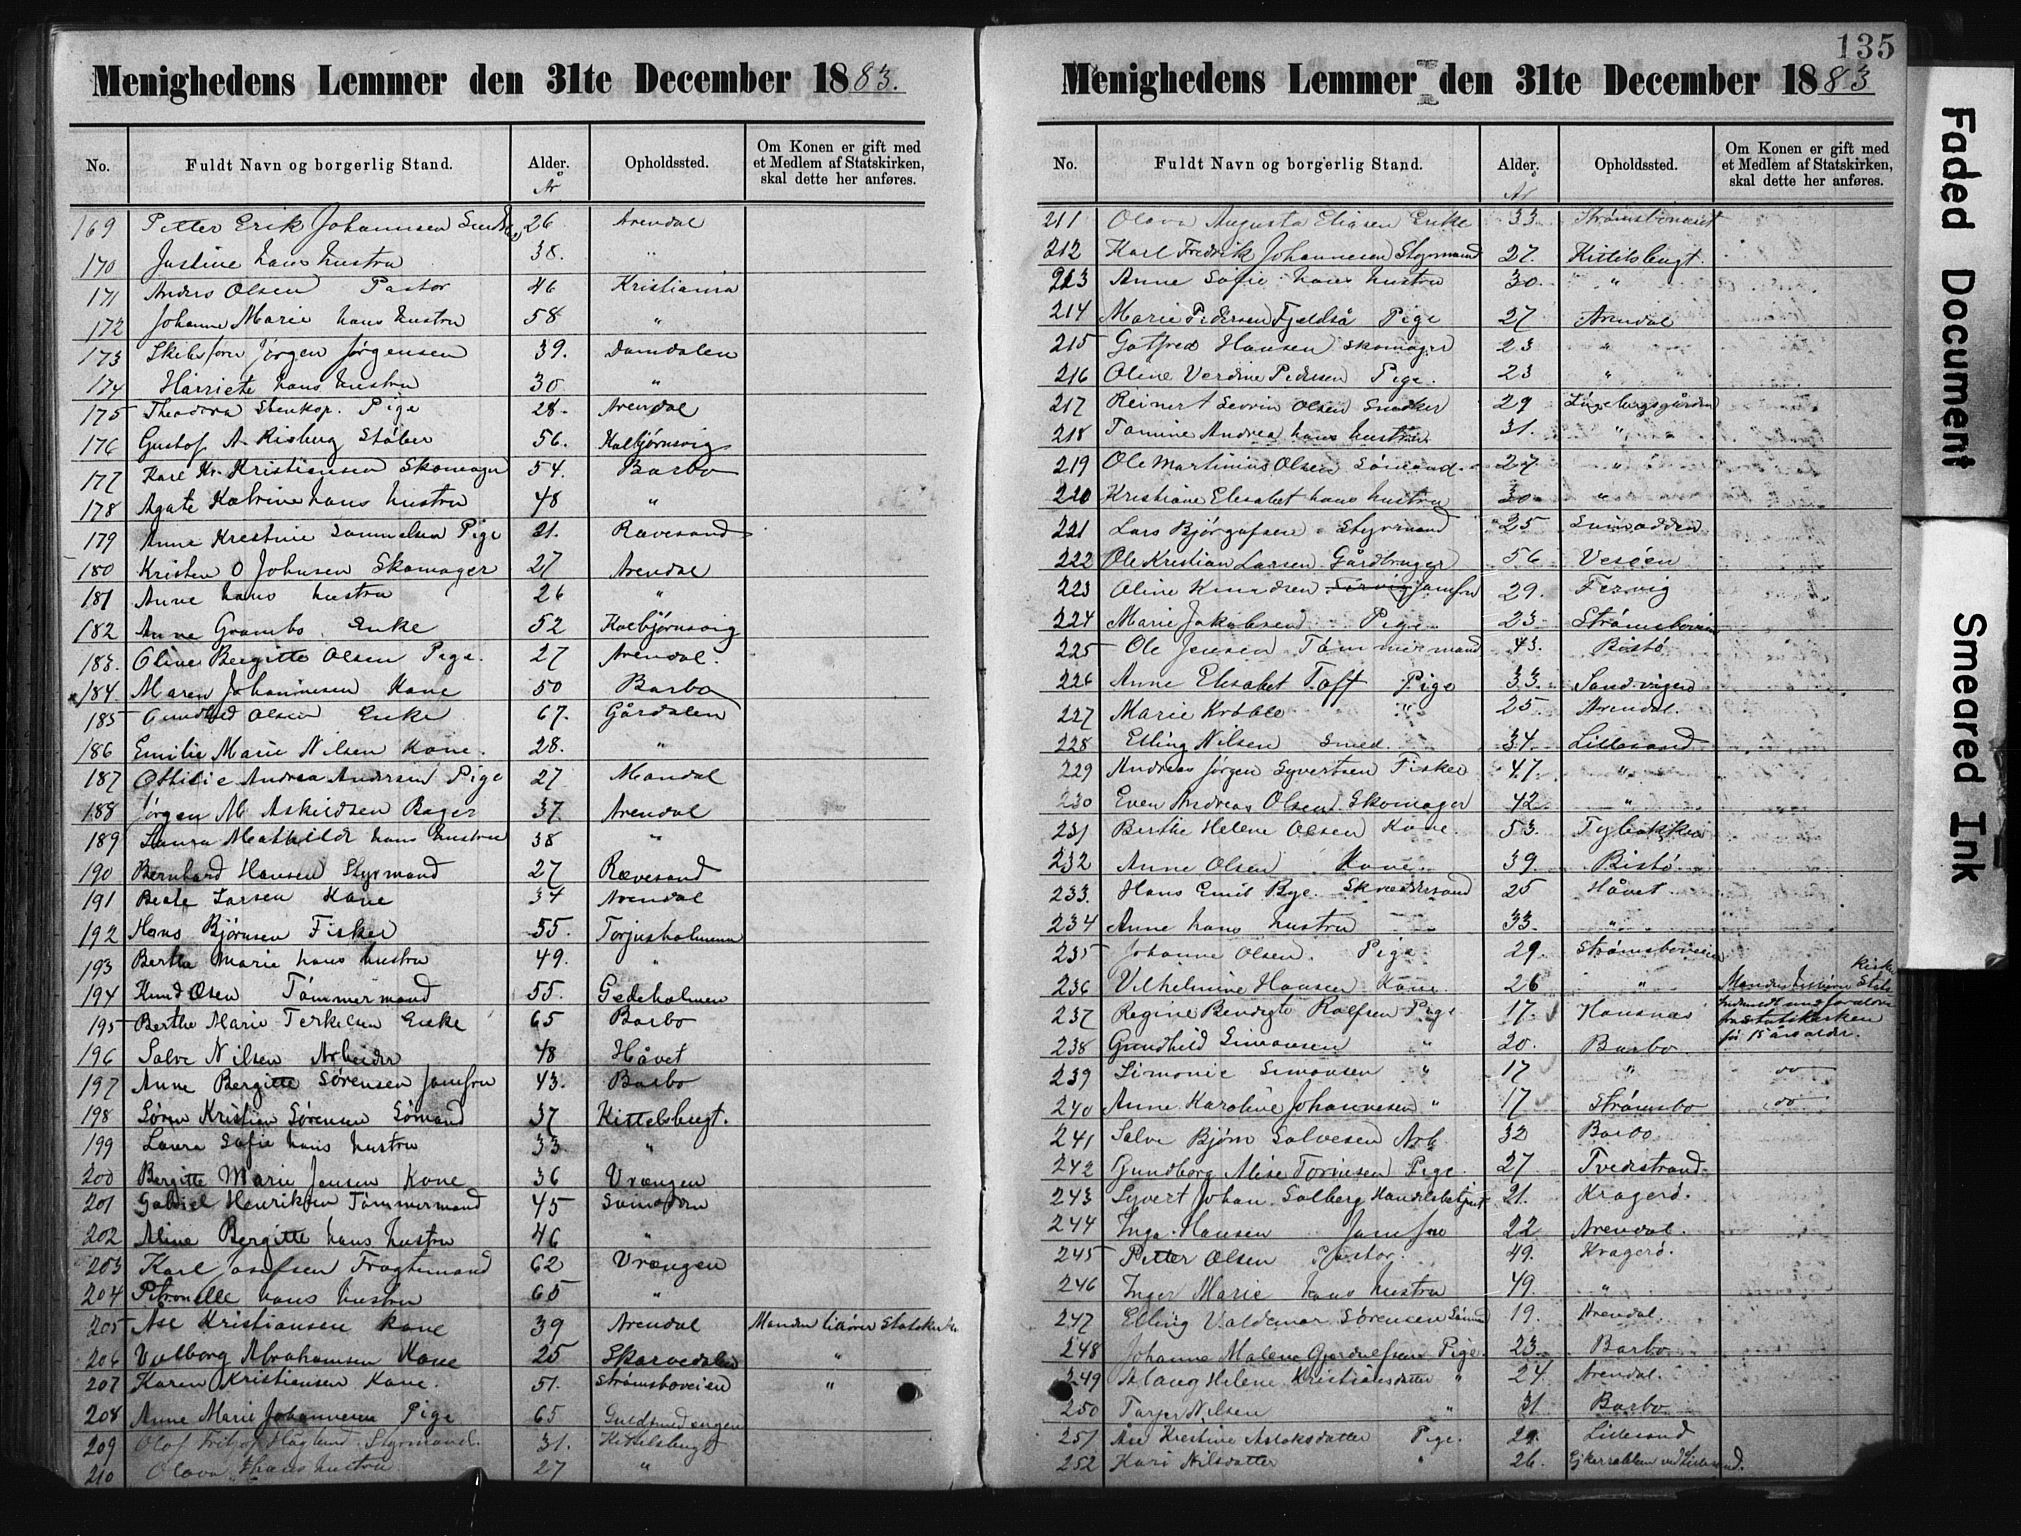 135
Menighedens Lemmer den 31te December 1883.
No. Fuldt Navn og borgerlig Stand. Alder. Opholdssted. Om Konen er gift med et Medlem af Statskirken, skal dette her anføres.
År
169 Petter Erik Johannesen 26 Arendal
170 Justine hans hustru 38. "
171 Anders Olsen Pastor 46 Kristiania
172 Johanne Marie hans hustru 58 "
173 Skibsføre Jørgen Jørgensen 39. Damdalen
174 Harriete hans hustru 30 "
175 Theodora Stenkop. Pige 28. Arendal
176 Gustof A. Risberg Støber 56. Kolbjørnsvig
177 Karl Kr. Kristiansen Skomager 54. Barbo
178 Agate Katrine hans hustru 48 "
179 Anne Krestine Samuelsen Pige 21. Rævesand
180 Kristen O Johnsen Skomager 27 Arendal
181 Anne hans hustru 26 "
182 Anne Grambo. Enke 52 Kolbjørnsvig
183. Oline Bergitte Olsen Pige. 27 Arendal.
184. Maren Johannesen Kone 50 Barbo
185 Gunhild Olsen Enke 67. Gårdalen
186 Emilie Marie Nilsen Kone. 28. "
187 Ottilie Andrea Andersen Pige 27 Mandal
188 Jørgen M. Askildsen Bager 37 Arendal
189 Laura Mathilde hans hustru 38 "
190 Bernhard Hansen Styrmand 27 Rævesand
191 Beate Larsen Kone 34 Arendal
192 Hans Bjørnsen Fisker 55. Torjusholmen
193 Berthe Marie hans hustru 49. "
194 Knud Olsen Tømmermand 55. Gedeholmen
195 Berthe Marie Terkelsen Enke 65 Barbo
196 Salve Nilsen Arbeider 48 Håvet
197 Anne Bergitte Sørensen Jomfru 43. Barbo
198 Søren Kristian Sørensen Sømand 37 Kittelsbugt.
199 Laura Sofie hans hustru 33 "
200 Bergitte Marie Jensen Kone 36 Vrængen
201 Gabriel Henriksen Tømmermand 45 Svinodden
202 Aline Bergitte hans hustru 46 "
203 Karl Josefsen Fragtemand 62 Vrængen
204 Petronelle hans hustru 65 "
205 Åse Kristiansen Kone 39 Arendal Manden tilhører Statskirke
206 Valborg Abrahamsen Kone 25 Skarvedalen "
207 Karen Kristiansen Kone. 51. Strømsboveien "
208 Anne Marie Johannesen Pige 65 Guldsmedengen
209 Olof Fritjof Høglund Styrmand. 31. Kittelsbugt
210 Olava hans hustru 27 "
Menighedens Lemmer den 31te December 1883
No. Fuldt Navn og borgerlig Stand. Alder. Opholdssted. Om Konen er gift med et Medlem af Statskirken, skal dette her anføres.
År
211 Olava Augusta Eliasen Enke 33
212 Karl Fredrik Johannesen Styrmand 27. Kittilsbugt.
213 Anne Sofie hans hustru 30. "
214 Marie Pedersen Fjeldså Pige 27 Arendal
215 Gotfred Hansen Skomager 23 "
216 Oline Verdine Pedersen Pige. 23 "
217 Reinert Severin Olsen Snedker 29
218 Tomine Andrea hans hustru 31. "
219 Ole Martinius Olsen Sømand. 27 "
220 Kristiane Elisabet hans hustru 30 "
221 Lars Bjørgufsen Styrmand 25 Svinodden
222 Ole Kristian Larsen Gårdbruger 56 Vesøen
223 Oline Knudsen Jomfru 29. Fervig
224 Marie Jakobsen Pige 23 Strømsboveien
225 Ole Jensen Tømmermand 43. Bistø
226 Anne Elisabet Toft Pige 33. Sandvigen
227 Marie Krøble " 25 Arendal.
228 Elling Nilsen Smed. 34. Lillesand
229 Andreas Jørgen Syvertsen Fisker 47. "
230 Even Andreas Olsen Skomager 42. "
231 Berthe Helene Olsen Kone. 53. Tybakken
232 Anne Olsen Kone. 39. Bistø.
233. Hans Emil Bye. Skræddersvend 25 Håvet
234 Anne hans hustru 33. "
235 Johanne Olsen. Pige 29. Strømsboveien
236 Vilhelmine Hansen Kone 26 " Manden tilhører Stats kirke
237 Regine Bendigte Rolfsen Pige 17. Hausnæs Indmeldt med forældre fra Statskirken før 15 års alder.
238 Gundhild Simonsen " 20. Barbo
239 Simonie Simonsen " 17 " do
240 Anne Karoline Johannesen " 17 Strømsbo do
241 Salve Bjørn Salvesen Arb. 32 Barbo
242 Gundborg Alise Torinesen Pige. 27 Tvedestrand
243 Syvert Johan Solberg Handelsbetjent 21. Kragerø.
244 Inga Hansen Jomfru 22 Arendal.
245 Petter Olsen Pastor. 49. Kragerø.
246 Inger Marie hans hustru 49. "
247 Elling Valdemar Sørensen Sømand 19. Arendal.
248 Johanne Malene Gjerulfsen Pige. 23. Barbo
249 Aslaug Helene Kristiansdatter " 24 Arendal.
250 Tarjer Nilsen " 31 Barbo
251 Åse Krestine Aslaksdatter Pige. 29. Lillesand
252 Kari Nilsdatter " 26. ved Lillesand.
Faded Document
Smeared Ink